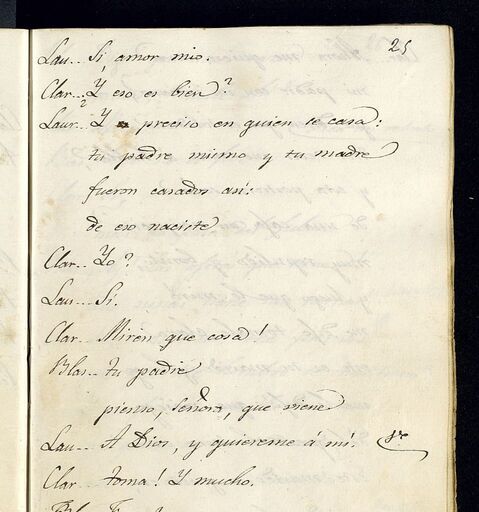 25
Lau... Si, amor mio.
Clar... Y eso es bien?
Laur... Y preciso en quien se casa:
tu padre mismo y tu madre
fueron casados asi:
de eso naciste
Clar... Yo?
Lau... Si.
Clar... Miren que cosa!
Blas... tu padre
pienso, Señora, que viene
Lau... A Dios, y quiereme á mi. Vᵉ
Clar... toma! Y mucho.